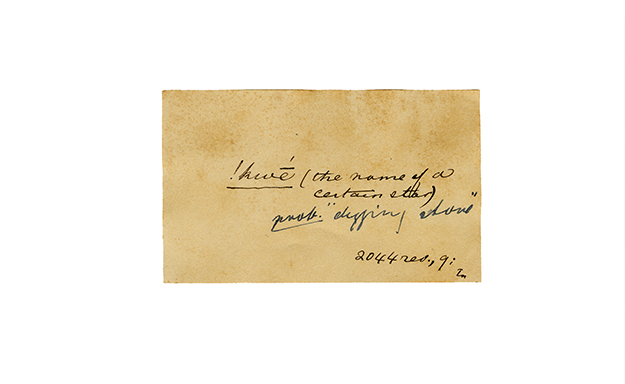 !kwḗ (the name of a
certain star)
prob. "digging stone"
2044 rev., 9: